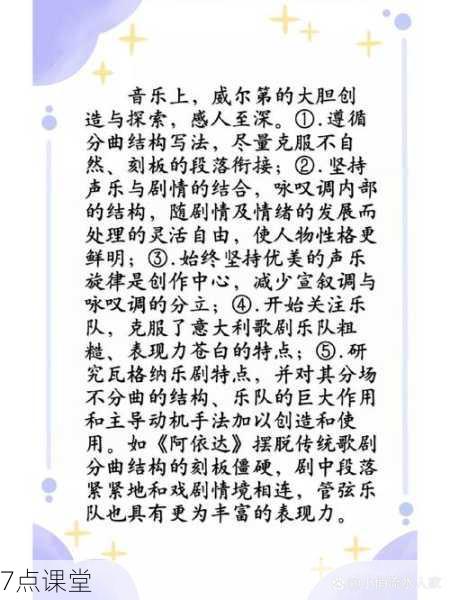 音乐上，威尔第的大胆创
造与探索，感人至深。①.遵循
分曲结构写法，尽量克服不自
然、刻板的段落衔接；②.坚持
声乐与剧情的结合，咏叹调内部
的结构，随剧情及情绪的发展而
处理的灵活自由，使人物性格更
鲜明；③.始终坚持优美的声乐
旋律是创作中心，减少宣叙调与
咏叹调的分立；④.开始关注乐
队，克服了意大利歌剧乐队粗
糙、表现力苍白的特点；⑤.研
究瓦格纳乐剧特点，并对其分场
不分曲的结构、乐队的巨大作用
和主导动机手法加以创造和使
用。如《阿依达》摆脱传统歌剧
分曲结构的刻板僵硬，剧中段落
紧紧地和戏剧情境相连，管弦乐
队也具有更为丰富的表现力。
7点课堂